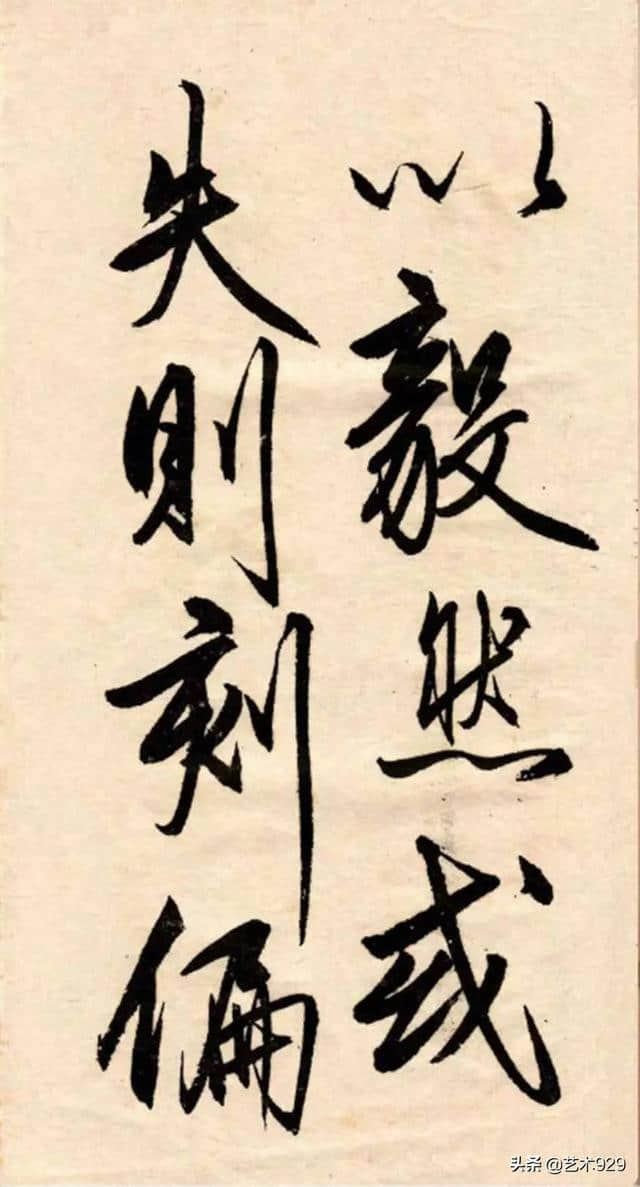 以毅然或
失則刻偏
头条 @艺术929